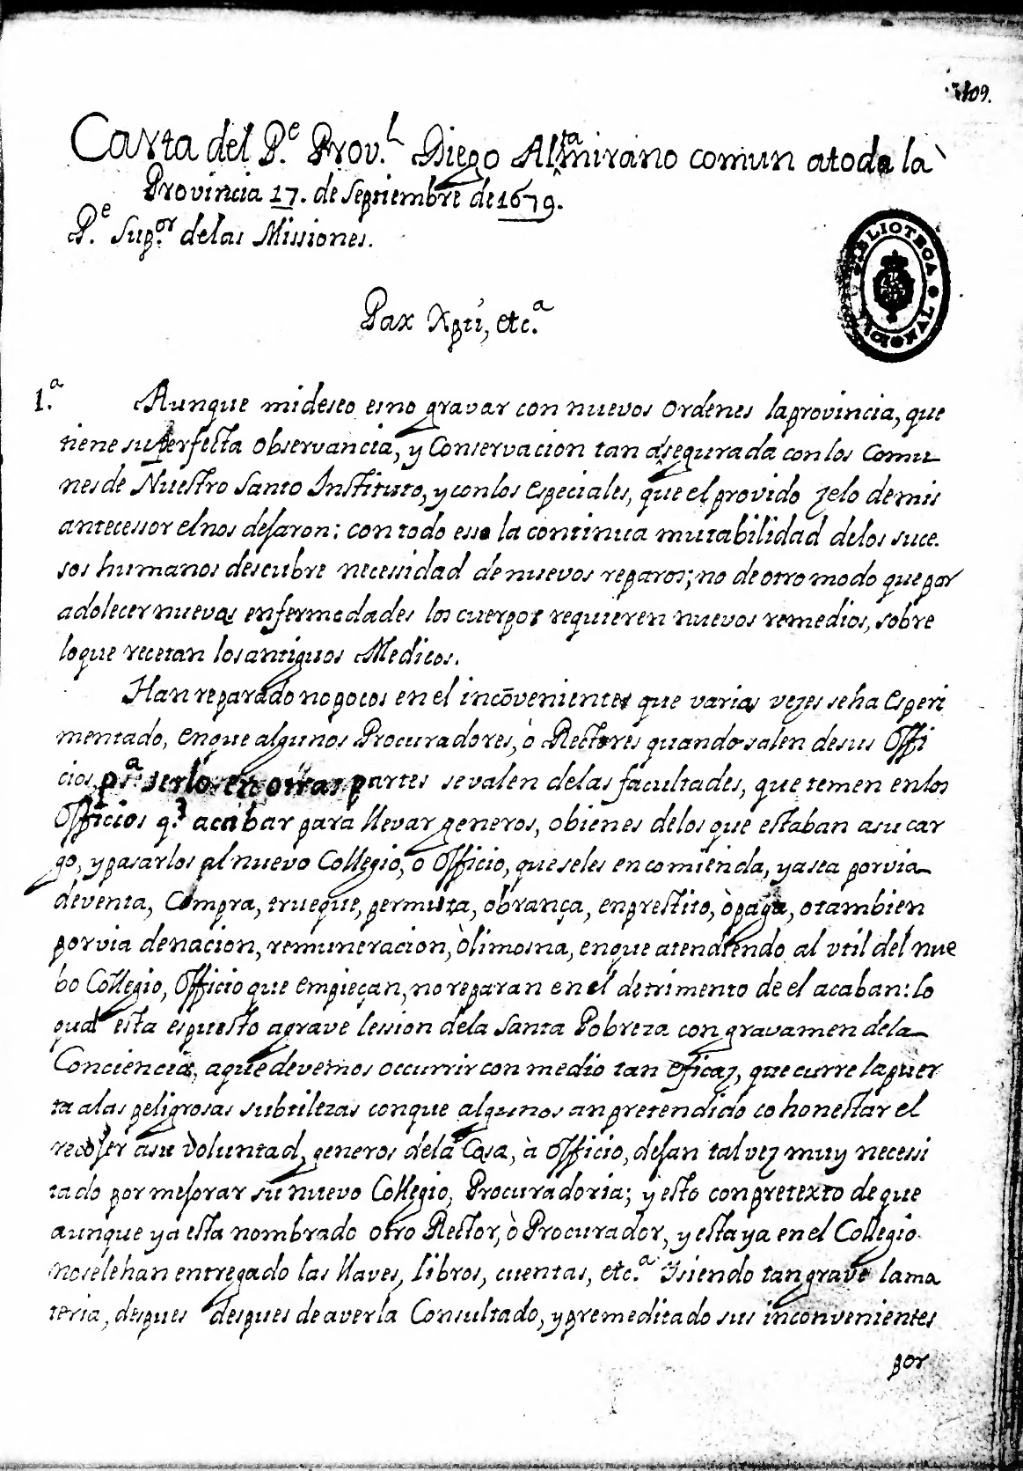 109.
Carta del P.e Prov.l Diego Altamirano comun atoda la
Provincia 17. de Septiembre de 1679.
P.e Sup.or delas Missiones.
BIBLIOTECA
Pax Xpti, etc.a
1.a Aunque mideseo esno gravar con nuevos Ordenes laprovincia, que
tiene superfecta Observancia, y Conservacion tan asegurada conlos Comu
nesde Nuestro Santo Instituto, y conlos especiales, que el provido zelo demis
antecessor elnos desaron: con todo esso la continua mutabilidad delos suce.
sos humanos descubre necessidad denuevos reparos; no de otro modo quepor
adolecer nuevas enfermedades los cuerpos requieren nuevos remedios, sobre
loque recetan los antiguos Medicos.
Han reparado no pocos en el incōvenientes que varias vezes seha Esperi
mentado, enque algunos Procuradores, ò Rectores quando salen desus Offi
cios, p.a serlo en otras partes sevalen delas facultades, que temen enlos
Officios q.e acabar para llevar generos, obienes delos que estaban asu car
go, y pasarlos al nuevo Collegio, o Officio, queseles encomienda, yasea porvia
deventa, Compra, trueque, permuta, obrança, enprestito, òpaga, otambien
porvia denacion, remuneracion, òlimosna, enque atendiendo al vtil del nue
bo Collegio, Officio que empieçan, noreparan en el detrimento de el acaban: lo
qual esta espuesto agrave lession dela Santa Pobreza con gravamen dela
Conciencia, aque devemos occurrir con medio tan eficaz, que cierre lapuer
ta alas peligrosas subtilezas conque algunos an pretendido cohonestar el
recoser asu voluntad, generos dela Casa, à Officio, desan talvez muy necessi
tado por mesorar su nuevo Collegio, Procuradoria; y esto con pretexto de que
aunque ya esta nombrado otro Rector, ò Procurador, y esta ya en el Collegio
noselehan entregado las llaves, libros, cuentas, etc.a Isiendo tan grave lama
teria, despues despues de averla Consultado, y premeditado sus inconvenientes
por